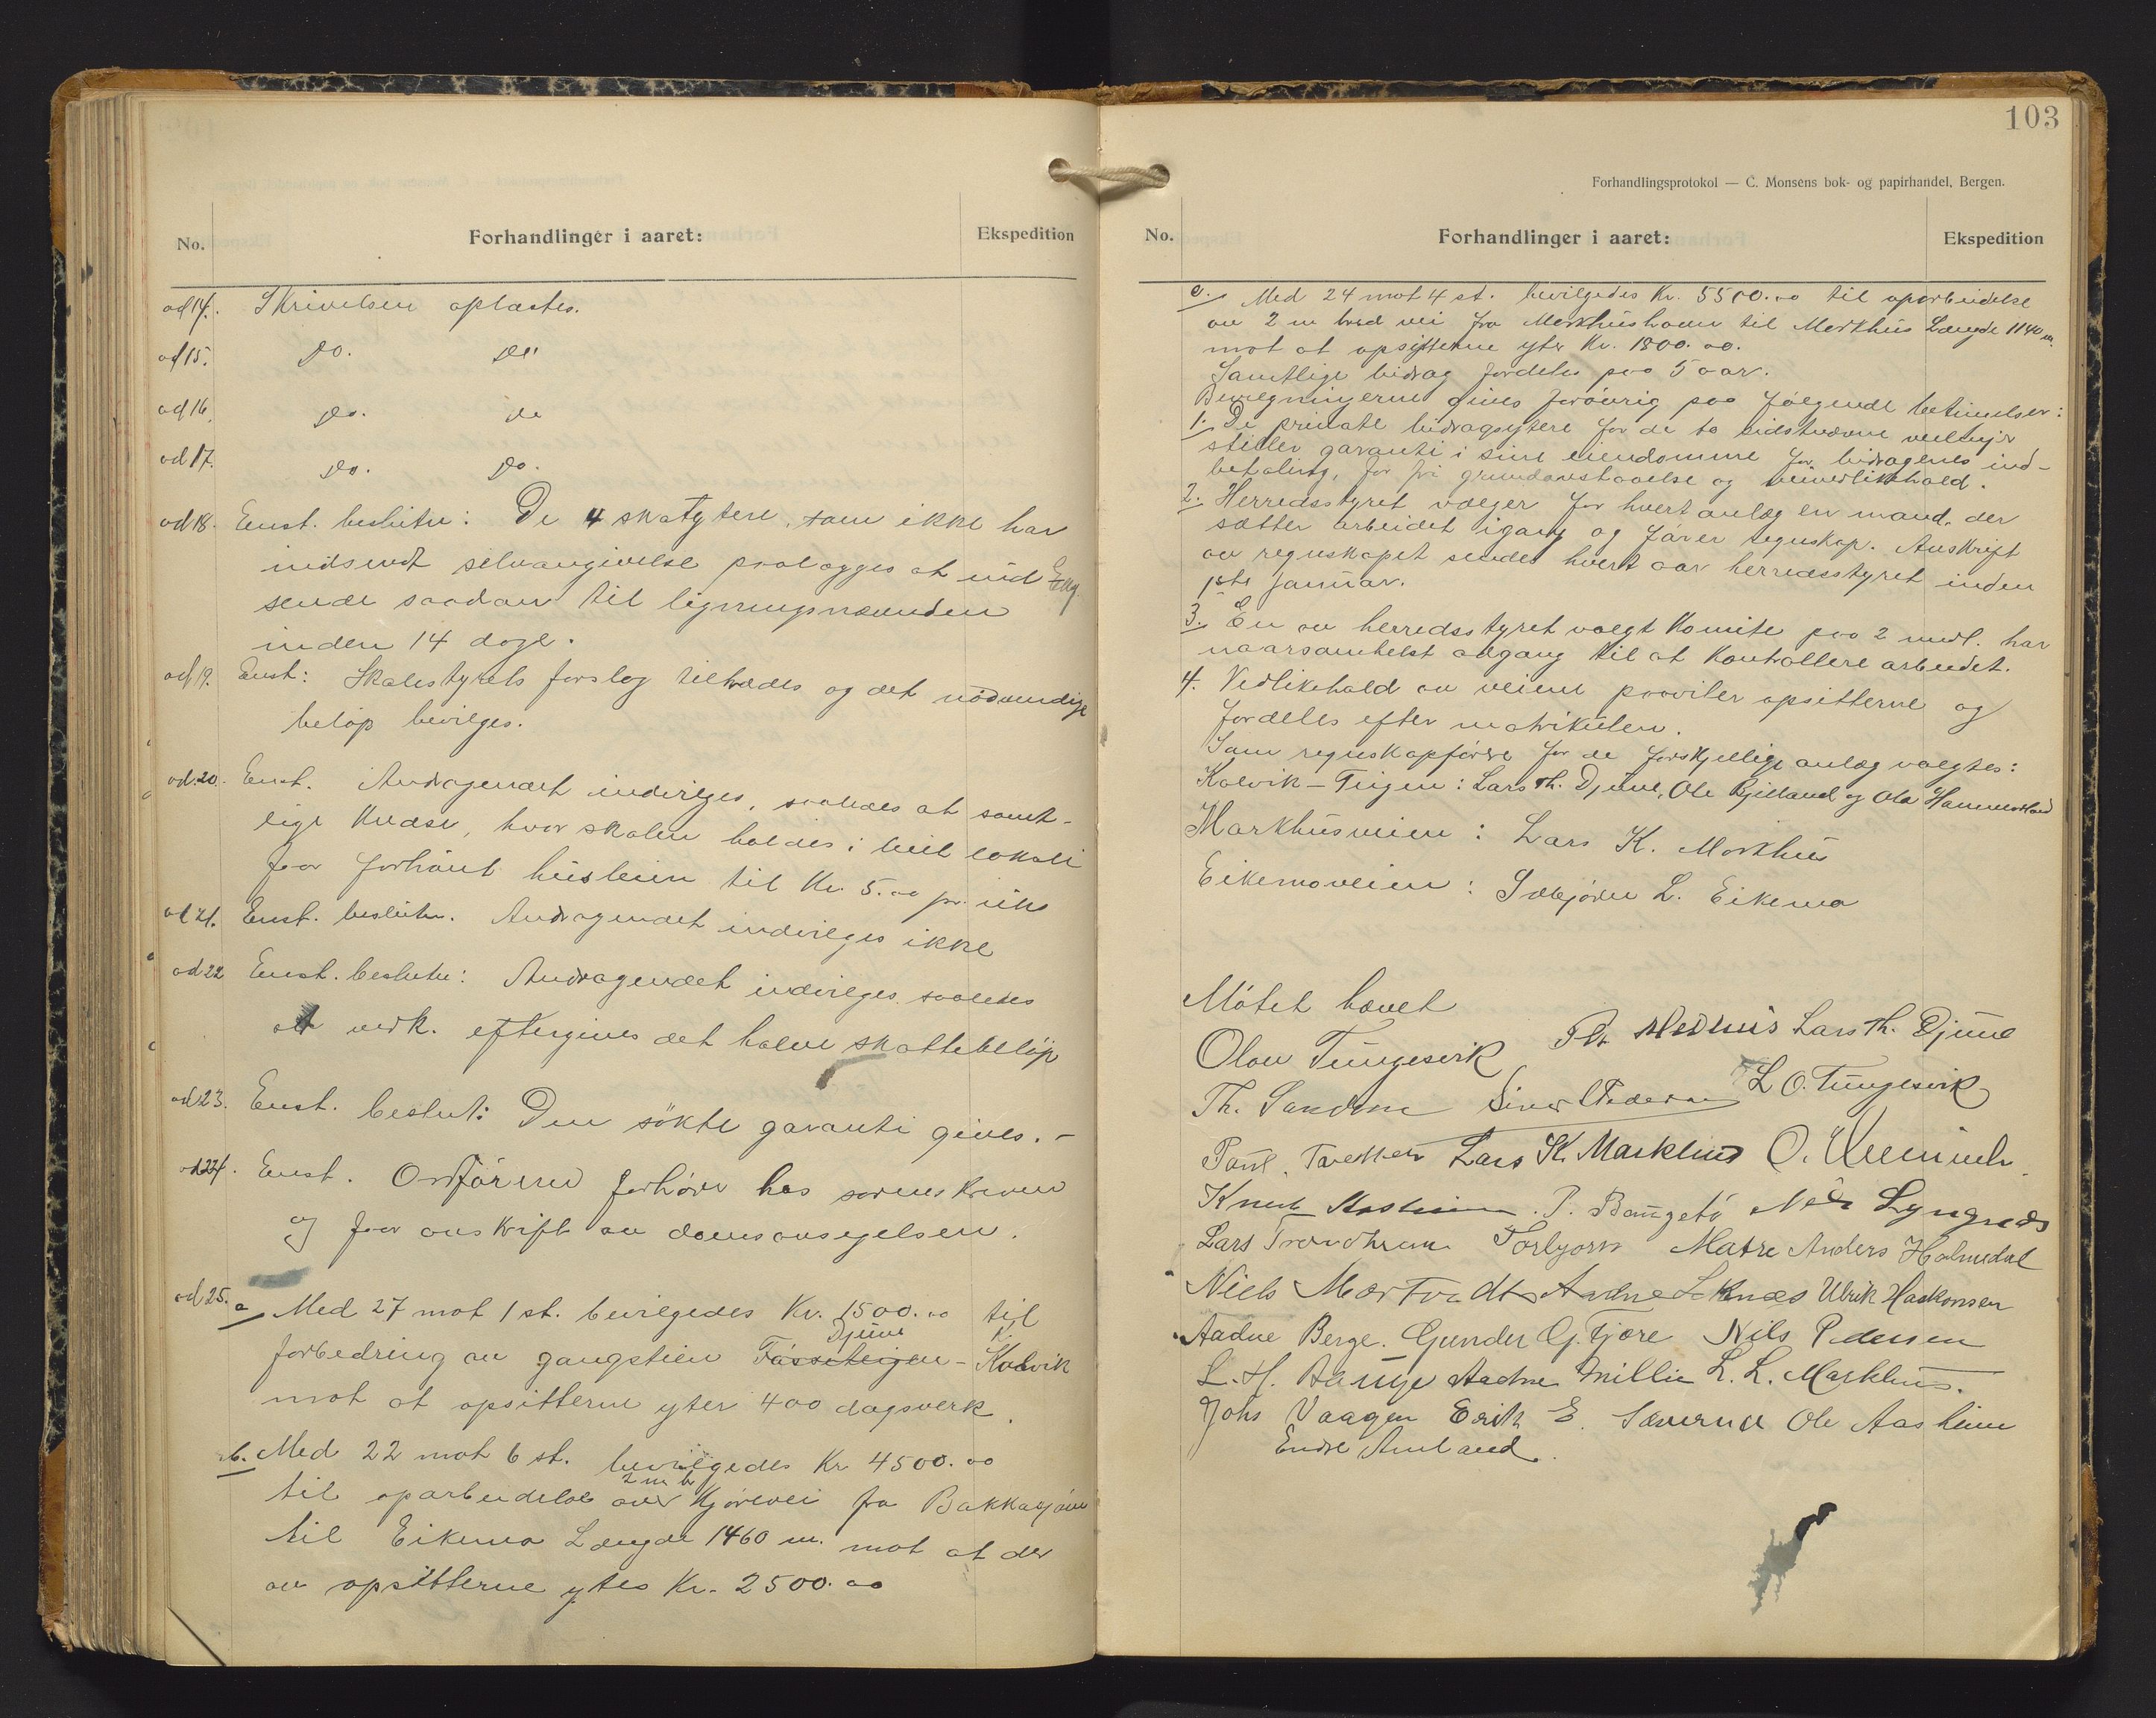 No. Forhandlinger i aaret: Ekspedition
ad 14. Skrivelsen oplæstes.
ad 15. Do. Do
ad 16. Do. Do
ad 17. Do. Do.
ad 18. Enst. beslutn: De 4 skatytere, som ikke har
indsendt selvangivelse paalægges at ind Exg.
sende saadan til ligningsnævnden
inden 14 dage.
ad 19. Enst: Skolestyrets forslag tiltrædes og det nödvendige
beløp bevilges.
ad. 20. Enst. Andragendet indvilges, saaledes at samt-
lige kredse, hvor skolen holdes i leiet lokale
faar forhöiet husleien til Kr. 5.00 pr. uke
ad 21. Enst. beslutn. Andragendet indvilges ikke
ad 22 Enst. beslutn: Andragendet indvilges saaledes
at vedk. eftergives det halve skattebelöp
ad 23. Enst. beslut: Den sökte garanti gives. -
ad 24. Enst. Ordföreren forhöre hos sorenskriveren
og faar avskrift av davsavsigelsen.
ad 25. a Med 27 mot 1 st. bevilgedes Kr. 1500.00 til
Djuve K.
forbedring av gangstien Fosseteigen - Kalvik
mot at opsitterne yter 400 dagsverk.
b. Med 22 mot 6 st. bevilgedes Kr 4500.00
2 m b
til oparbeidelse av Kjörevei fra Bakkasjöen
til Eikemo Længde 1460 m. mot at der
av opsitterne ytes Kr. 2500.00
103
Forhandlingsprotokol — C. Monsens bok- og papirhandel, Bergen.
No. Forhandlinger i aaret: Ekspedition
c. Med 24 mot 4 st. bevilgedes Kr. 5500.00 til oparbeidelse
av 2 m bred vei fra Markhushavn til Markhus Længde 1140 m.
mot at opsitterne yter Kr. 1800.00.
Samtlige bidrag fordeles paa 5 aar.
Bevilgningerne gives forövrig paa fölgende betingelser:
1. De private bidragsytere for de to sidstnævne veilinjer
stiller garanti i sine eiendomme for bidragenes ind-
betaling, for fri grundavstaaelse og veivedlikehold.
2. Herredsstyret vælger for hvert anlæg en mand, der
sætter arbeidet igang og förer regnskap. Avskrift
av regnskapet sendes hvert aar herredsstyret inden
1ste Januar.
3. En av herredsstyret valgt Komite paa 2 medl. har
naarsomhelst adgang til at Kontrollere arbeidet.
4. Vedlikehold av veiene paaviler opsitterne og
fordeles efter matrikulen.
Som regnskapsförere for de forskjellige anlæg valgtes:
Kalvik - Teigen: Lars Th. Djuve, Ole Gjilland og Ola Hammerland
Markhusveien: Lars K. Markhus
Eikemoveien: Sæbjörn L. Eikemo
Mötet hævet
Olav Tungesvik P. Medhus Lars Th. Djuve
Th. Sandvin Siver Pedersen L O. Tungesvik
Paul Lars K. Markhus O.
Knut P. Baugstö Nils Lyngnæs
Lars Trondheim Torbjorn Matre Anders Holmedal
Niels Martvedt Andne Eknæs Ulrik Haakonsen
Aadne Berge. Gunder G. Fjære Nils Pedersen
L. H. Bauge Aadne Millie L. L. Markhus.
Johs Vaagen Erik E. Sæverud Ole Aasheim
Endre Amland.